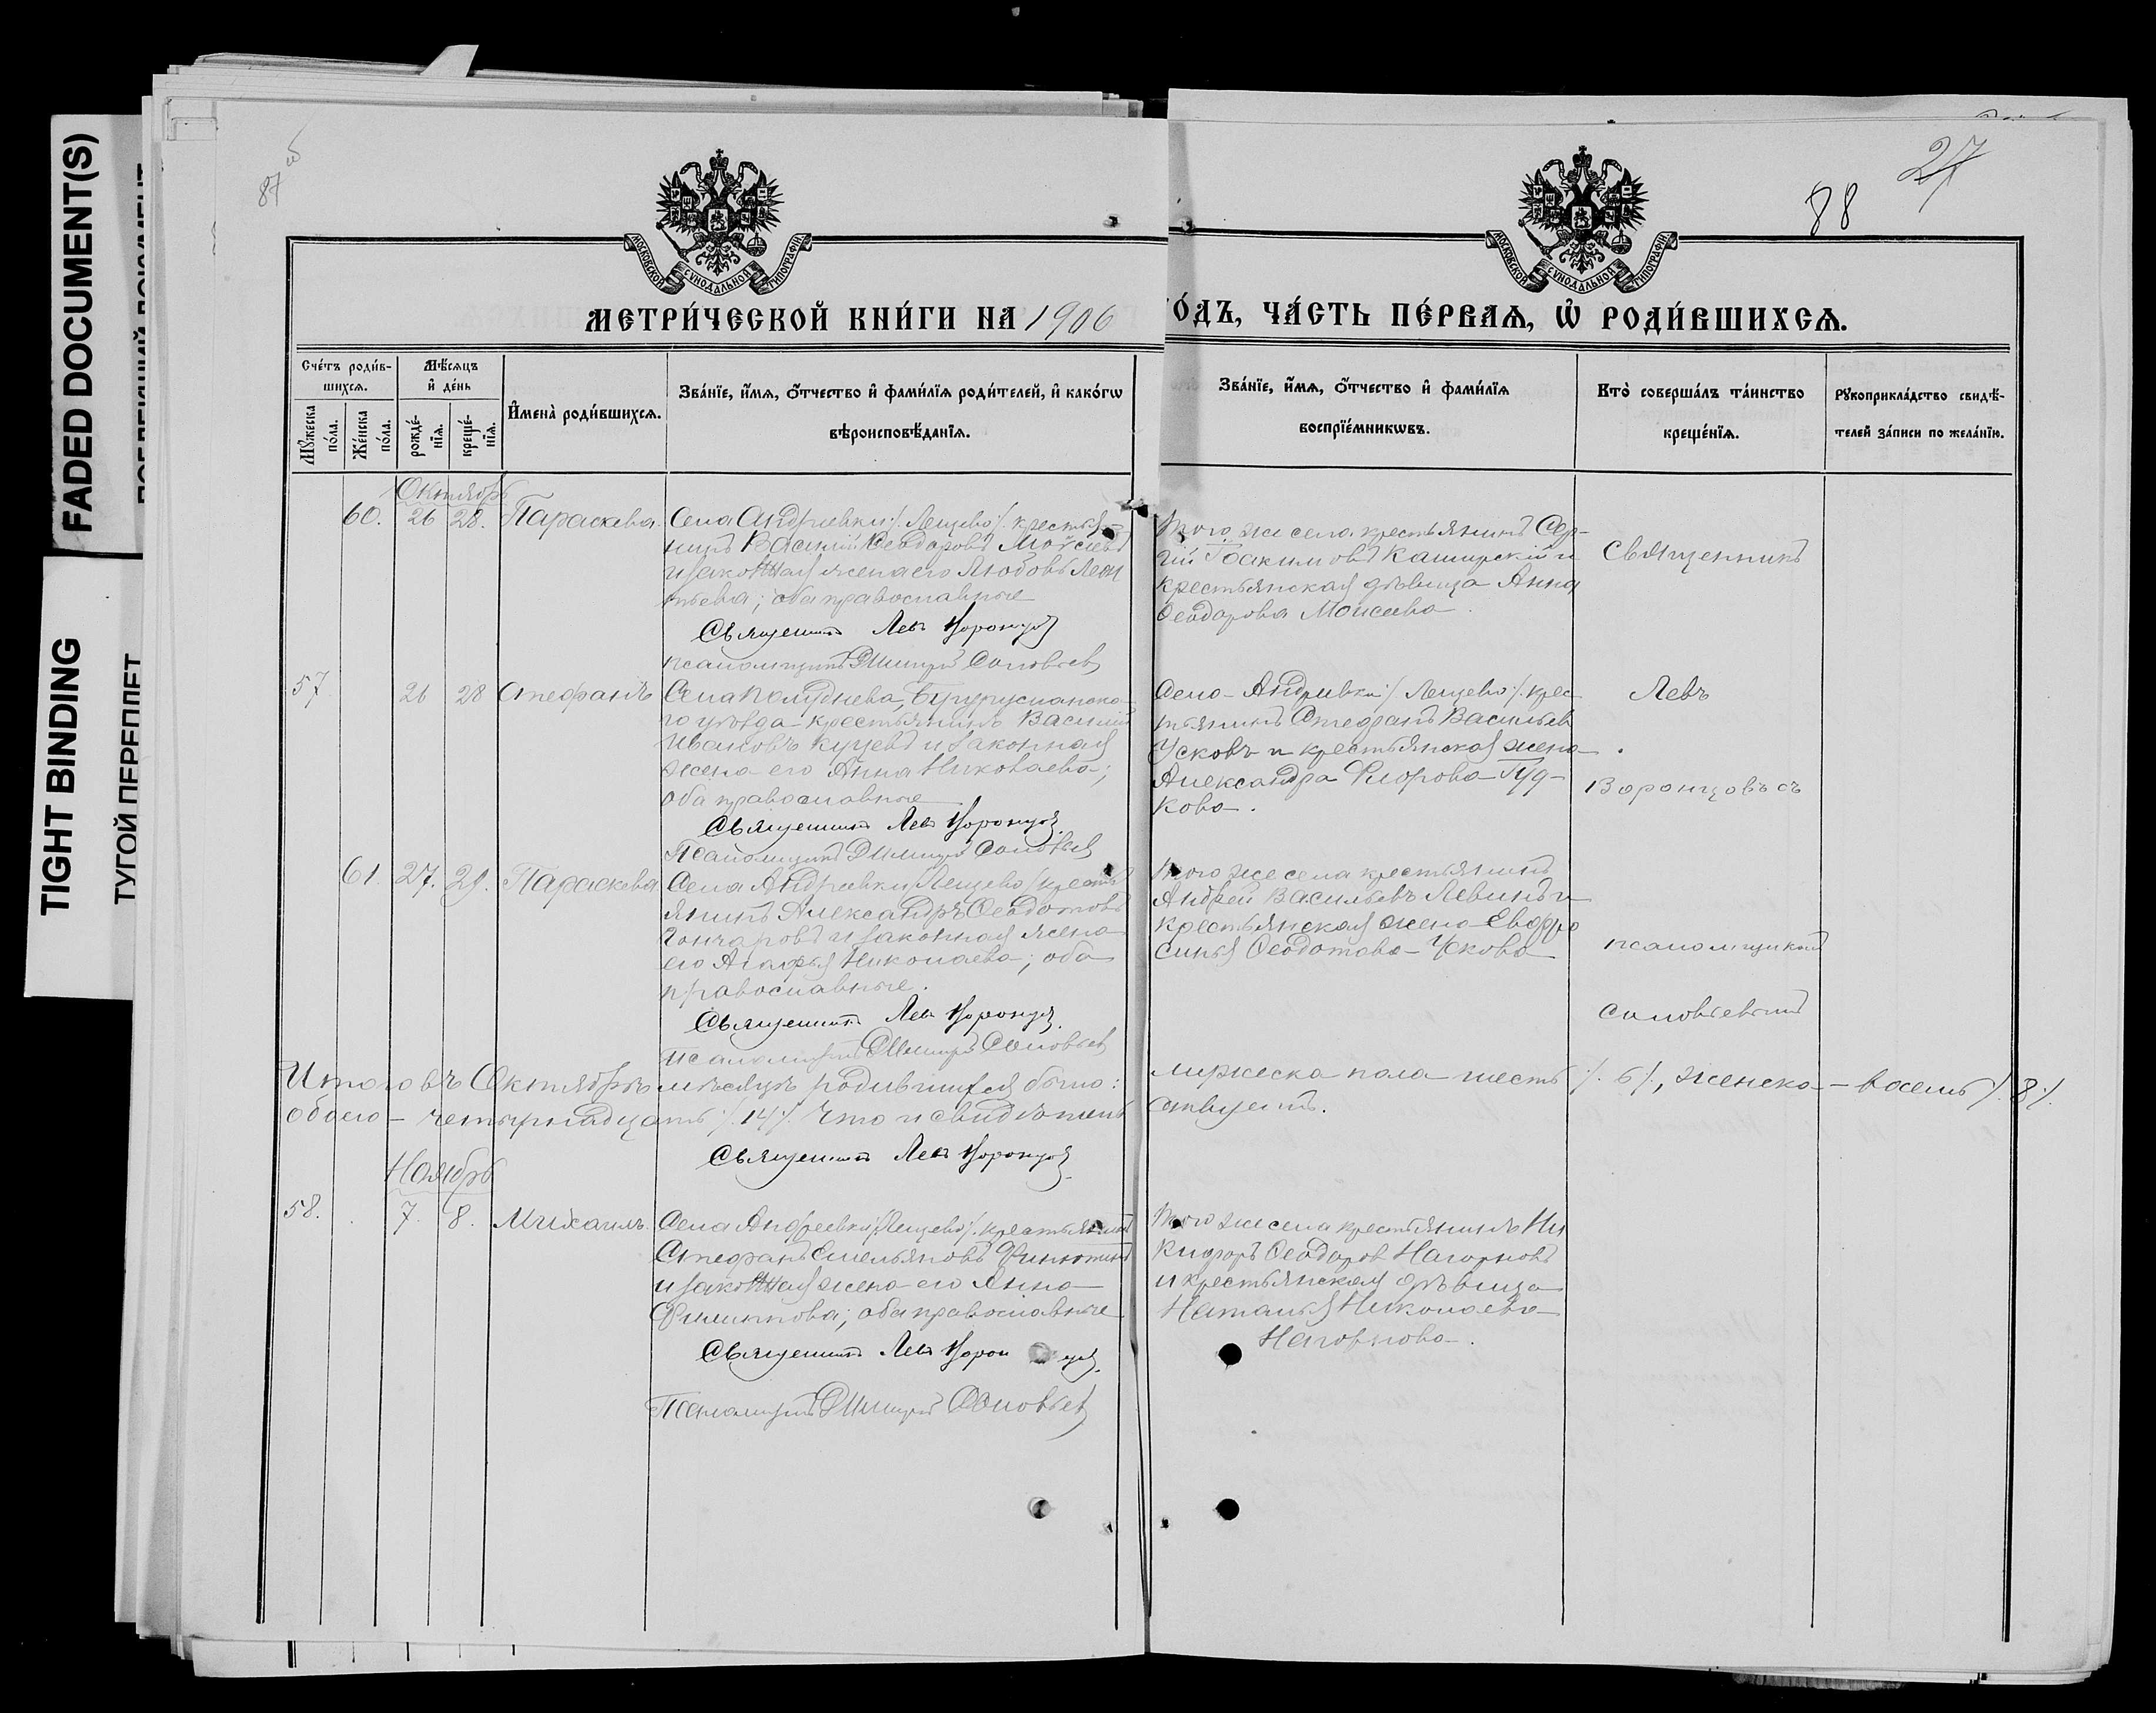 FADED DOCUMENT(S)
TIGHT BINDING
ТУГОЙ ПЕРЕПЛЕТ
87 об
27
88
МОСКОВСКОЙ СУНОДАЛЬНОЙ ТИПОГРАФІИ
МОСКОВСКОЙ СУНОДАЛЬНОЙ ТИПОГРАФІИ
МЕТРИ́ЧЕСКОЙ КНИ́ГИ НА 1906
ГО́ДЪ, ЧА́СТЬ ПЕ́РВАѦ, Ѡ҆ РОДИ́ВШИХСѦ.
Сче́тъ роди́в-
шихсѧ.
Мꙋжеска по́ла.
Же́нска по́ла.
Мѣ́сѧцъ
и҆ де́нь
рожде́-
нїѧ.
креще́-
нїѧ.
И҆мена̀ роди́вшихсѧ.
Зва́нїе, и҆́мѧ, ѻ҆́тчество и҆ фами́лїѧ роди́телей, и҆ како́гѡ
вѣроисповѣ́данїѧ.
Зва́нїе, и҆́мѧ, ѻ҆́тчество и҆ фами́лїѧ
воспрїе́мникѡвъ.
Кто̀ соверша́лъ та́инство
креще́нїѧ.
Рꙋкоприкла́дство свидѣ́-
телей за́писи по жела́нїю.
Октябрь
60. 26 28. Параскева.
Села Андреевки /. Лещево /. крестья-
нинъ Василий Ѳеодоровъ Моисеевъ
и законная жена его Любовь Леон
тьева; оба православные
Священникъ Левъ Воронцовъ
псаломщикъ Димитрий Соловьев
того же села крестьянинъ Сер-
гій Іоакимовъ Каширскій и
крестьянская дѣвица Анна
Ѳеодорова Моисеева.
Священникъ
57. 26 28 Стефанъ
Села Полуднева, Бугурусланска-
го уѣзда крестьянинъ Василий
Ивановъ Куцевъ и законная
жена его Анна Николаева;
оба православные
Священникъ Левъ Воронцовъ.
Псаломщикъ Димитрий Соловьев
Села Андреевки /. Лещево /. крес
тьянинъ Стефанъ Васильев
Усковъ и крестьянская жена
Александра Флорова Гуд-
кова.
Левъ
Воронцовъ съ
61. 27. 29. Параскева
Села Андреевки /Лещево/ кресть
янинъ Александръ Ѳеодотовъ
Гончаровъ и законная жена
его Агафья Николаева; оба
православные.
Священникъ Левъ Воронцовъ.
псаломщикъ Димитрий Соловьев
того же села крестьянинъ
Андрей Васильевъ Левинъ и
крестьянская жена Евфро
синья Ѳеодотова Ускова
псаломщиком
Соловьевым
Итого въ Октябрѣ мѣсяцѣ родившихся было: мужеска пола шесть /. 6 /., женска – восемь /. 8 /.
обоего – четырнадцать /. 14 /. Что и свидѣтель ствуетъ.
Священникъ Левъ Воронцовъ
Ноябрь
58. 7. 8. Михаилъ.
Села Андреевки /. Лещево /. крестьянинъ
Стефанъ Емельяновъ Филютинъ
и законная жена его Анна
Филиппова; оба православные
Священникъ Левъ Воронцовъ.
Псаломщикъ Димитрий Соловьев
Того же села крестьянинъ Ни
кифоръ Ѳеодоров Нагорновъ
и крестьянская дѣвица
Наталья Николаева
Нагорнова.